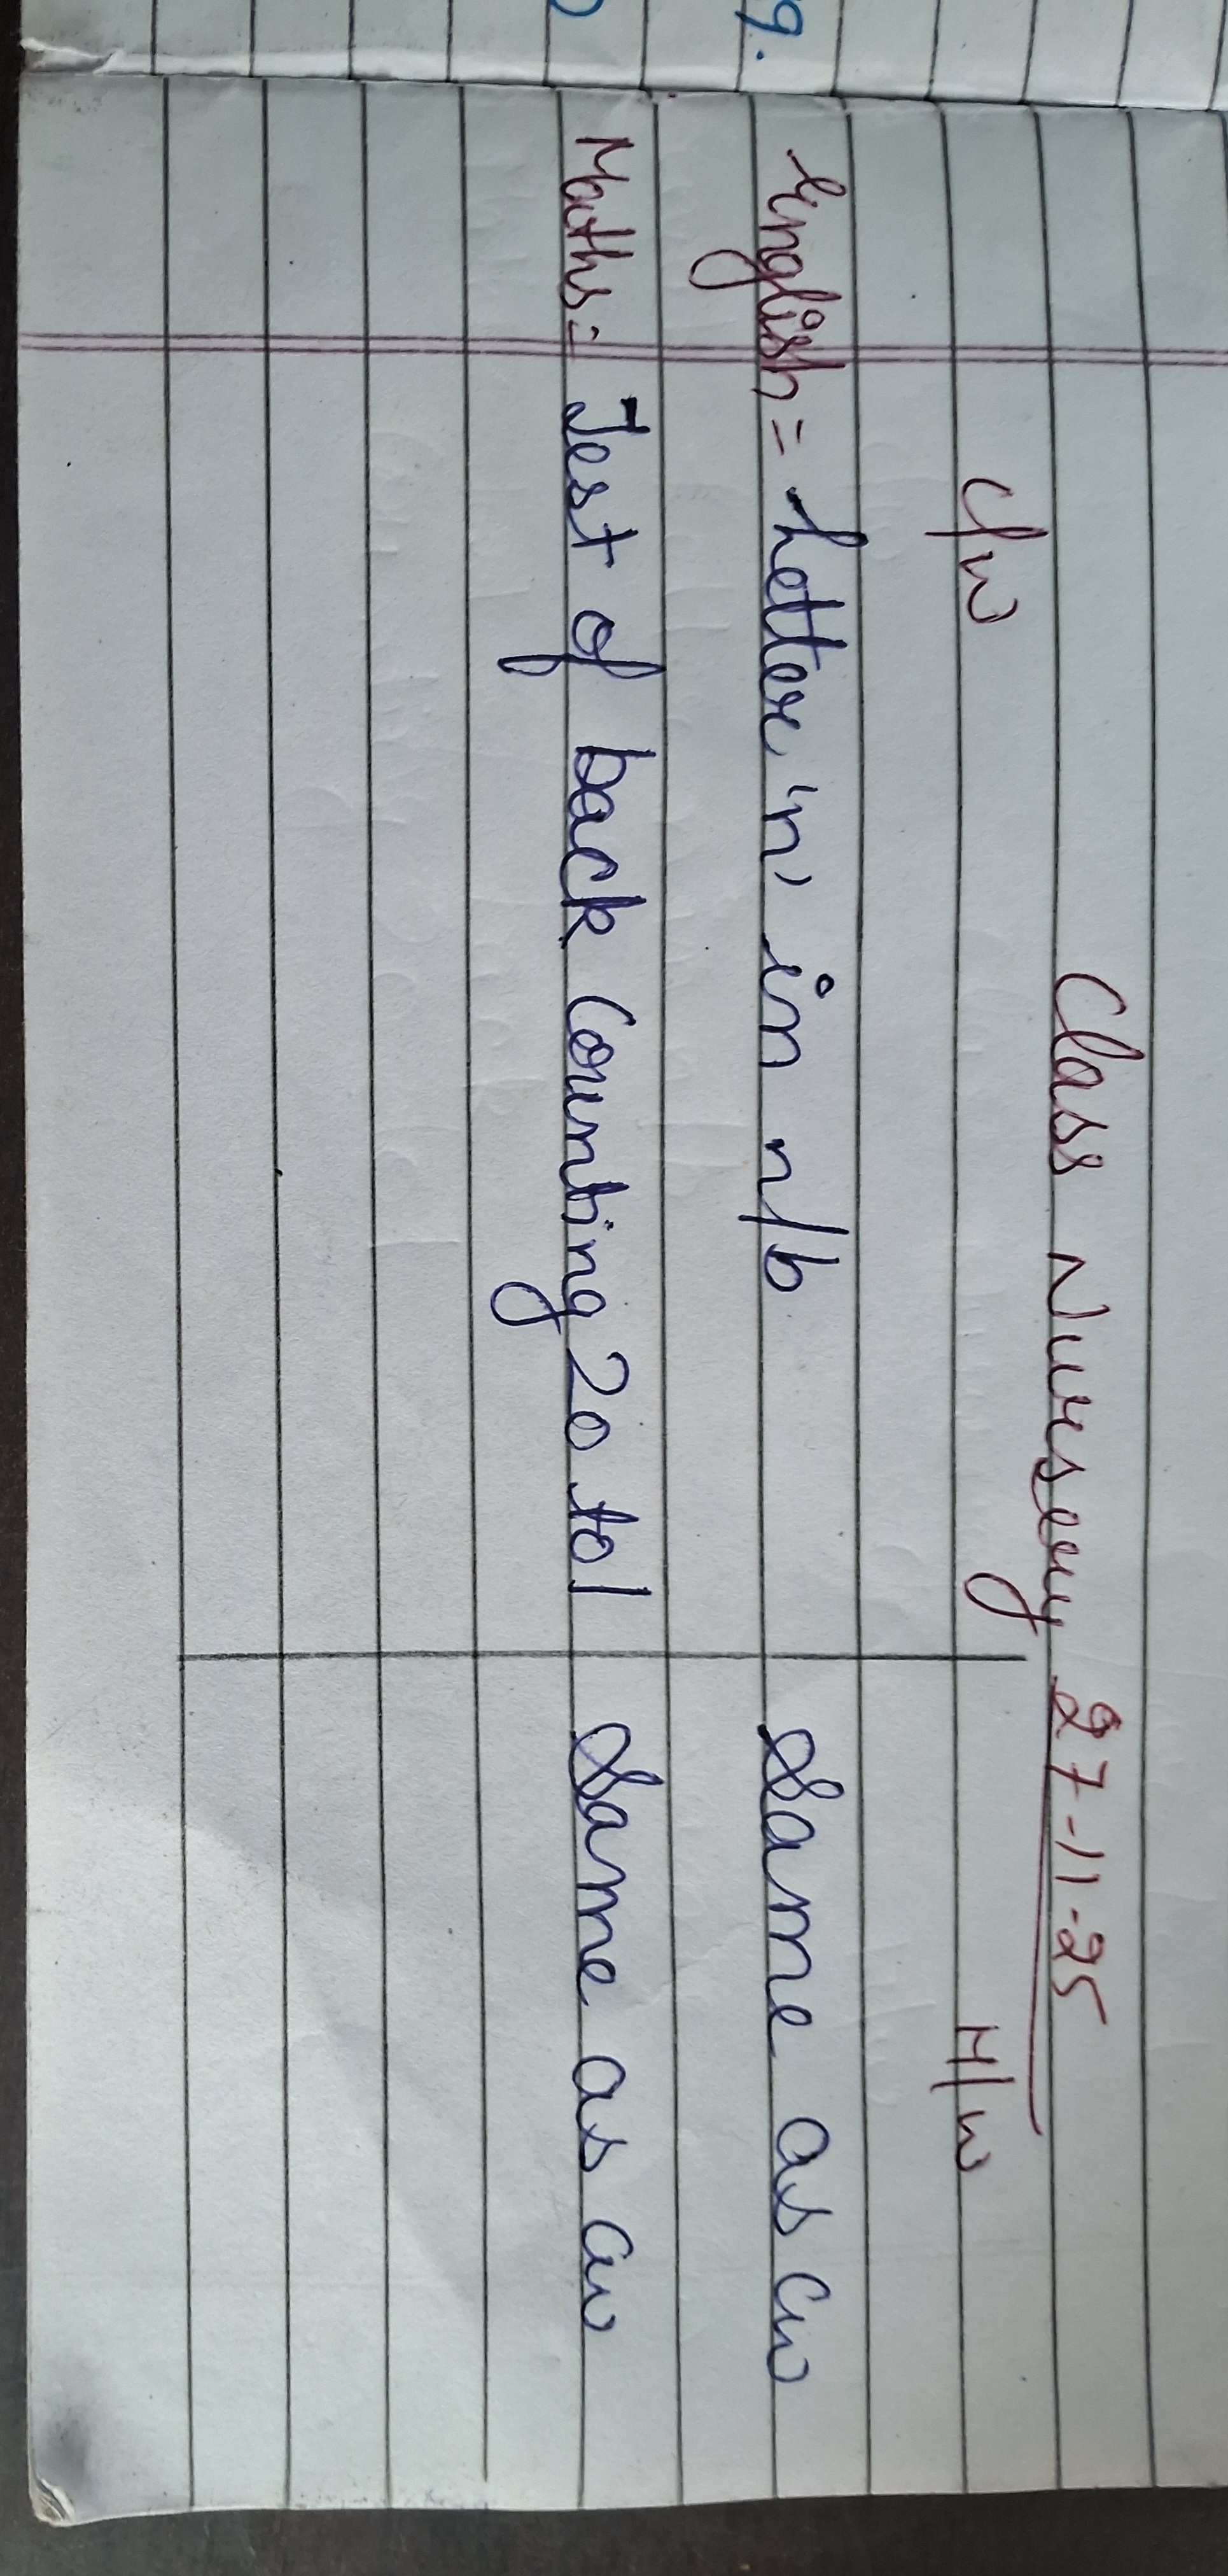 Class Nursery 27-11-25
C/w H/w
English = Letter 'n' in n/b Same as cw
Maths = Test of back Counting 20 to 1 Same as cw
9.